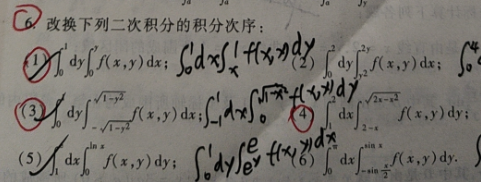 6. 改换下列二次积分的积分次序：
(1) ∫₀¹dy∫₀^y f(x,y)dx; ∫₀¹dx∫ₓ¹ f(x,y)dy (2) ∫₀²dy∫_{y²}^{2y} f(x,y)dx; ∫₀⁴
(3) ∫₀¹dy∫_{-√(1-y²)}^{√(1-y²)} f(x,y)dx; ∫₋₁¹dx∫₀^{√(1-x²)} f(x,y)dy (4) ∫₁²dx∫_{2-x}^{√(2x-x²)} f(x,y)dy;
(5) ∫₁^e dx∫₀^{ln x} f(x,y)dy; ∫₀¹dy∫_{e^y}^e f(x,y)dx (6) ∫₀^π dx∫_{-sin x/2}^{sin x} f(x,y)dy.